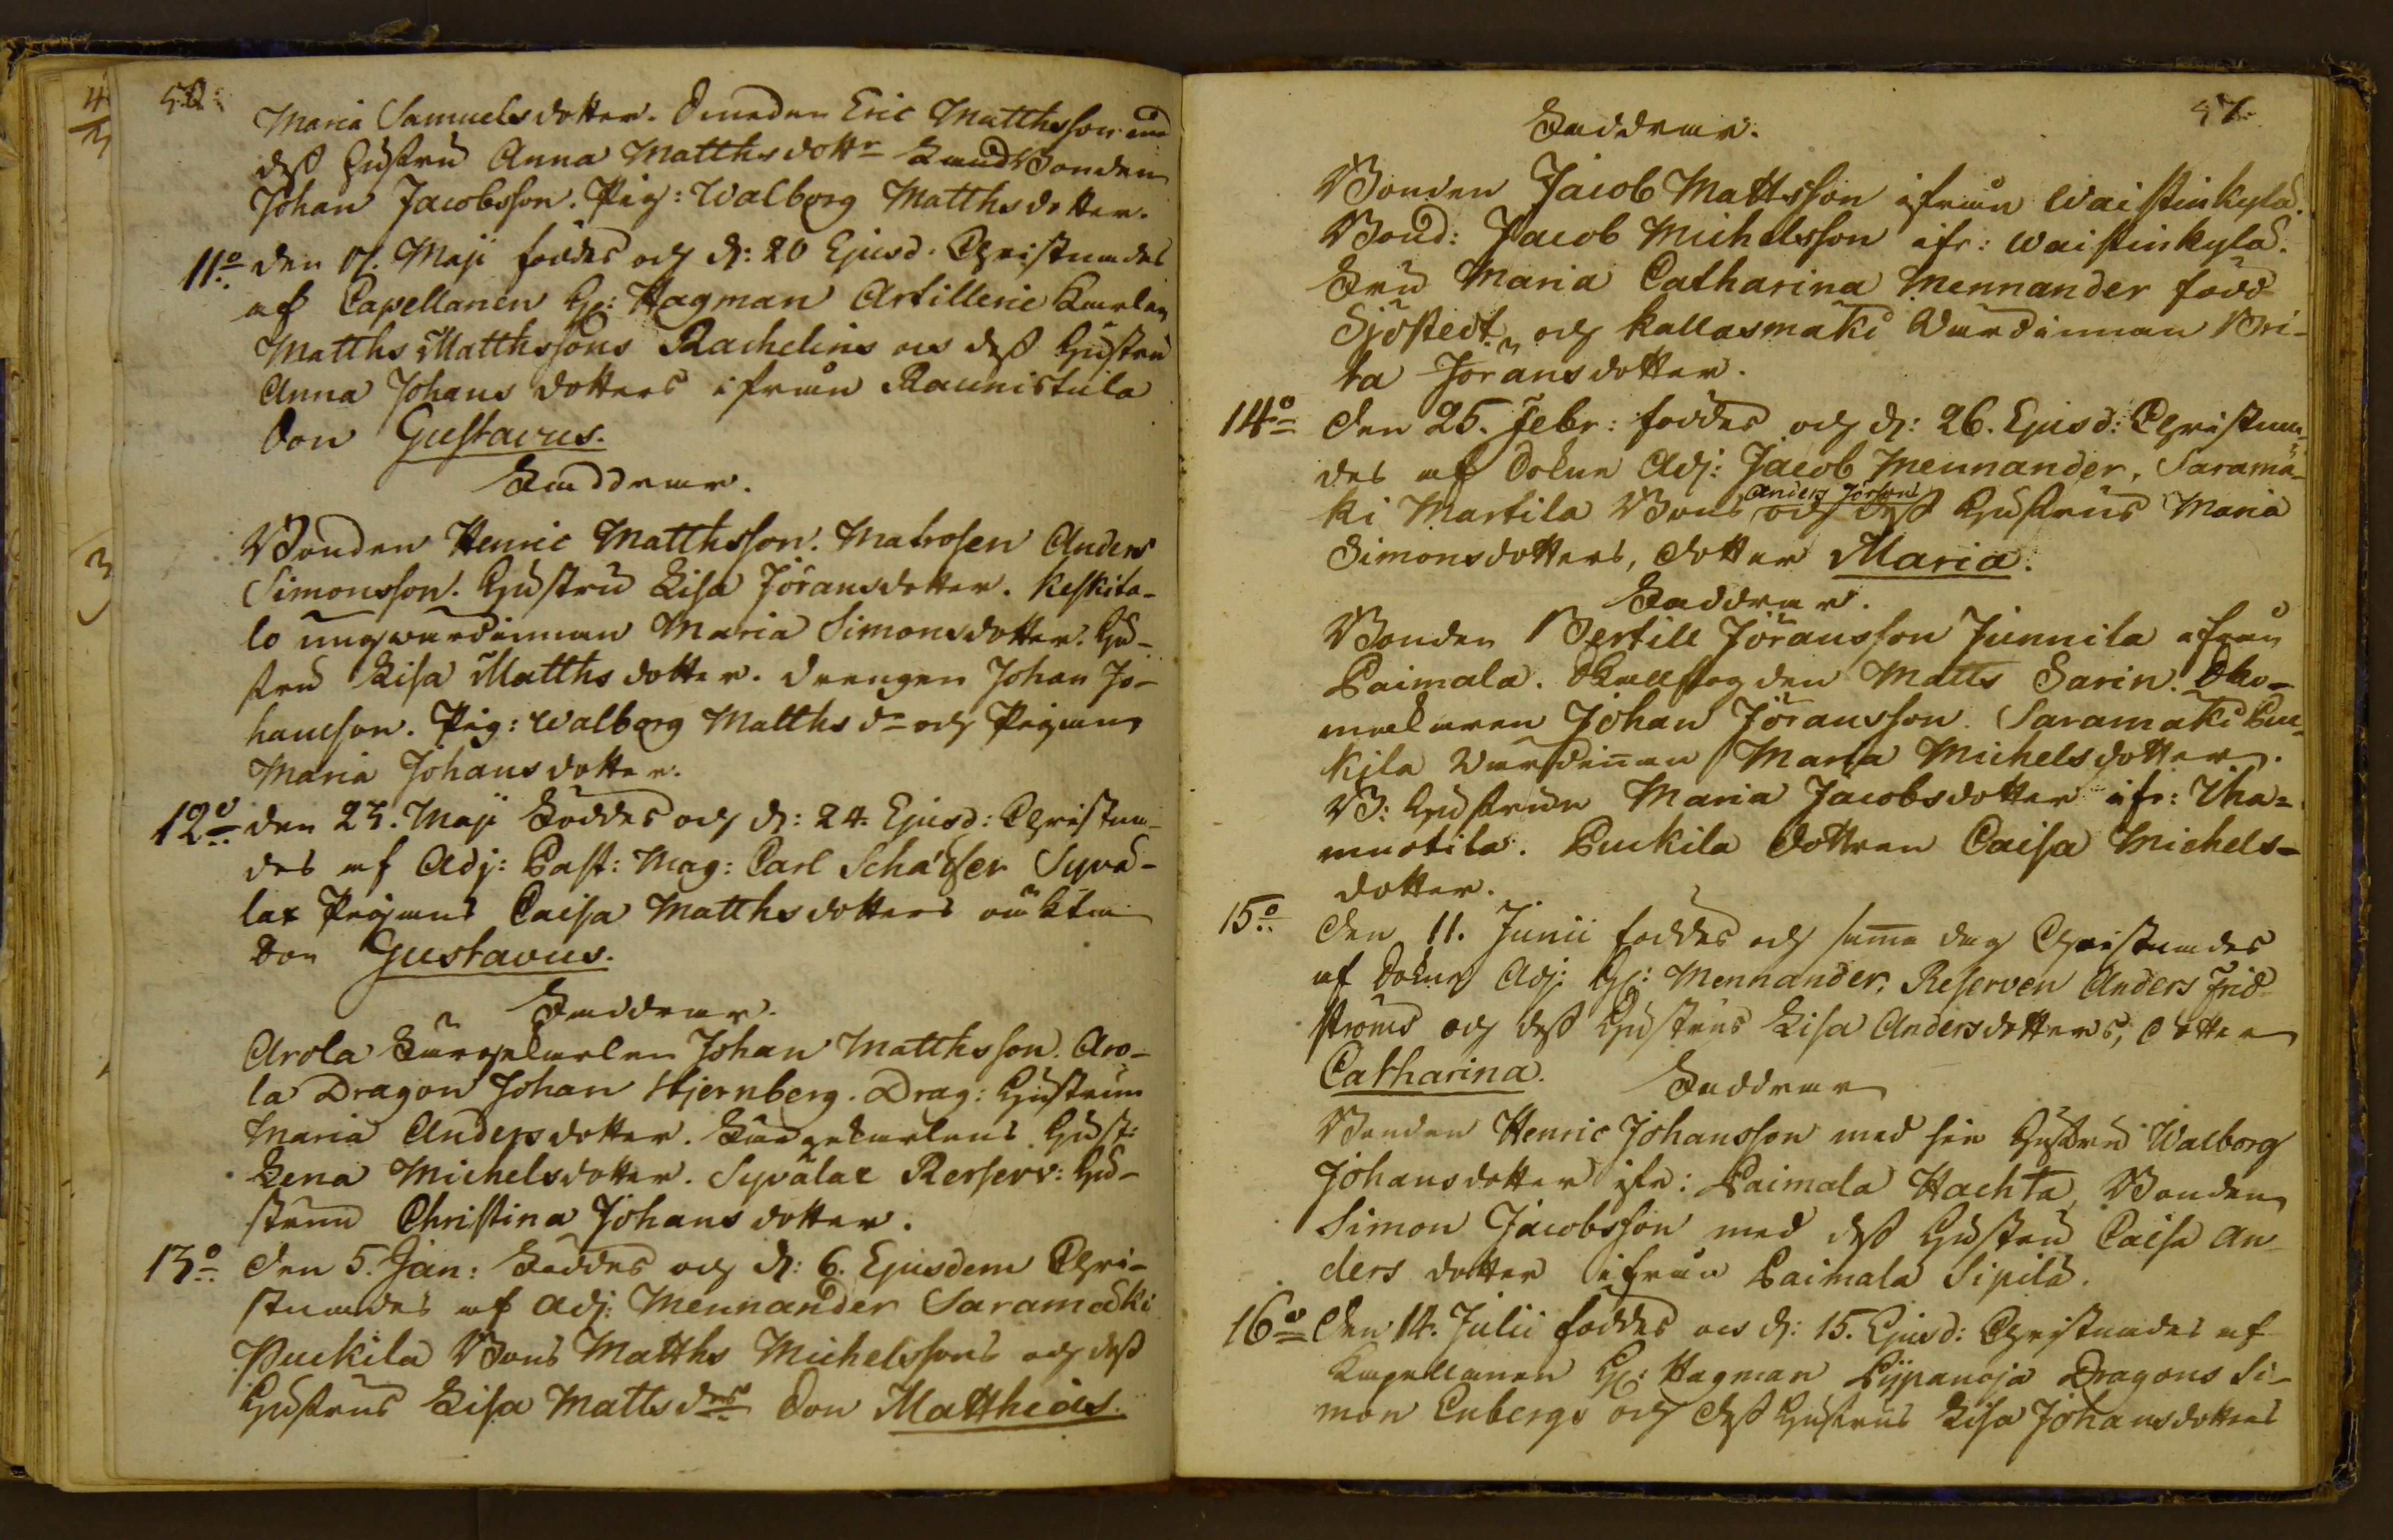 Maria Samuelsdotter. Smeden Eric Matthsson med
dess hustru Anna Matthsdottr Bonden
Johan Jacobsson. Pig: Walborg Matthsdotter.
11o den 17. Maji föddes och d: 20 Ejusd. Christnades
af Capellanen H: Hagman Artillerie Karlen
Matths Matthssons Rachelins och dess hustru
Anna Johans dotters ifrån Raunistula
Son Gustavus.
Faddrar.
Bonden Henric Matthsson. Matrosen Anders
Simonsson. Hustru Lisa Jöransdotter. Keskita-
lo ungwärdinnan Maria Simonsdotter. Hu-
stru Lisa Matths dotter. Drengen Johan Jo-
hansson. Pig: Walborg Matths dr och Pigan
Maria Johansdotter.
12o den 23. Maji Föddes och d: 24. Ejusd: Christna-
des af Adj: Past: Mag: Carl Schäfer Syvä-
lax Pigans Caisa Matthsdotters oäkta
Son Gustavus.
Faddrar.
Arola Färgekarlen Johan Matthsson. Aro-
la Dragon Johan Stjernberg. Drag: Hustrun
Maria Andersdotter. Färgekarlens Hust:
Lena Michelsdotter. Syvälax Reserv: Hu-
strun Christina Johans dotter.
13o Den 5. Jan: Föddes och d: 6. Ejusdem Chri-
stnades af Adj: Mennander Saramäki
Puckila Bons Matths Michelssons och dess
Hustrus Lisa Matts drs Son Matthias.
57.
Faddrar.
Bonden Jacob Mattsson ifrån Waistenkylä.
Bond: Jacob Michelsson ifr: Waistenkylä.
Fru Maria Catharina Mennander född
Sjöstedt, och Kallasmäki Wärdinnan Bri-
ta Jöransdotter.
14o Den 25. Febr: föddes och d: 26. Ejusd: Christna-
des af Sokne Adj: Jacob Mennander, Saramä-
ki Martila Bons Anders Jörsons och dess Hustrus Maria
Simonsdotters, dotter Maria.
Faddrar.
Bonden Bertill Jöransson Junnila ifrån
Paimala. Matts Sarin. Sko-
makaren Johan Jöransson. Saramäki Puc-
kila Wärdinnan Maria Michelsdotter.
B: Hustrun Maria Jacobsdotter ifr: Iha-
muotila. Puckila dottren Caisa Michels-
dotter.
15o Den 11. Junii föddes och samma dag Christnades
af Sokne Adj: H: Mennander, Reserven Anders Frid
ströms och dess Hustrus Lisa Andersdotters, dotter
Catharina. Faddrar
Bonden Henric Johansson med sin Hustru Walborg
Johansdotter ifr: Paimala Hachta, Bonden
Simon Jacobsson med dess Hustru Caisa An
ders dotter ifrån Paimala Sipilä.
16o Den 14. Julii föddes och d: 15. Ejusd: Christnades af
Kapellanen H: Hagman Pÿpanoja Dragons Si-
mon Enbergs och dess Hustrus Lisa Johansdotters